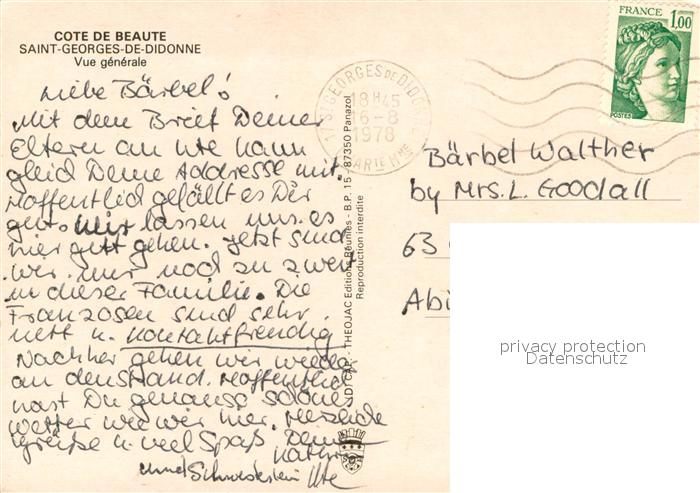 COTE DE BEAUTE
SAINT-GEORGES-DE-DIDONNE
Vue générale
FRANCE 1,00
POSTES
17 ST GEORGES DE DIDONNE
18 H 45
16-8
1978
Liebe Bärbel!
Mit dem Brief Deiner
Eltern an Ute kam
gleich Deine Addresse mit.
Hoffentlich gefällt es Dir
gut. Wir lassen uns es
hier gut gehen. Jetzt sind
wir nur noch zu zweit
in dieser Familie. Die
Franzosen sind sehr
nett u. kontaktfreudig
Nachher gehen wir wieder
an den Strand. Hoffentlich
hast Du genauso schönes
Wetter wie wir hier. Herzliche
Grüße u. viel Spaß Deine
Katrin
und Schwesterlein Ute
THEOJAC Editions Réunies - B.P. 15 - 87350 Panazol
Reproduction interdite
Bärbel Walther
by Mrs. L. Goodall
63
Abi
privacy protection
Datenschutz